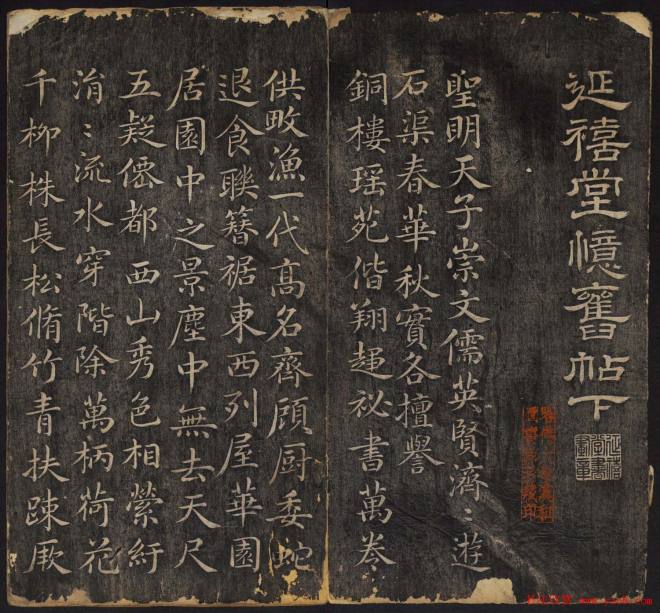 延禧堂憶舊帖下
聖明天子崇文儒英賢濟〻遊
石渠春華秋實各擅譽
銅樓瑶苑偕翔趍祕書萬卷
供畋漁一代髙名齊顧厨委蛇
退食聮簪裾東西列屋華園
居園中之景塵中無去天尺
五疑僊都西山秀色相縈紆
涓〻流水穿階除萬柄荷花
千柳株長松脩竹青扶踈厥
延禧
堂書
畫章